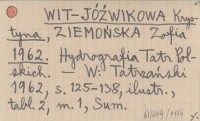 WIT-JÓŹWIKOWA Krys-
tyna, ZIEMOŃSKA Zofia
1962. Hydrografia Tatr Pol-
skich. — W: Tatrzański
1962, s. 125-138, ilustr.,
tabl. 2, m. 1, Sum.